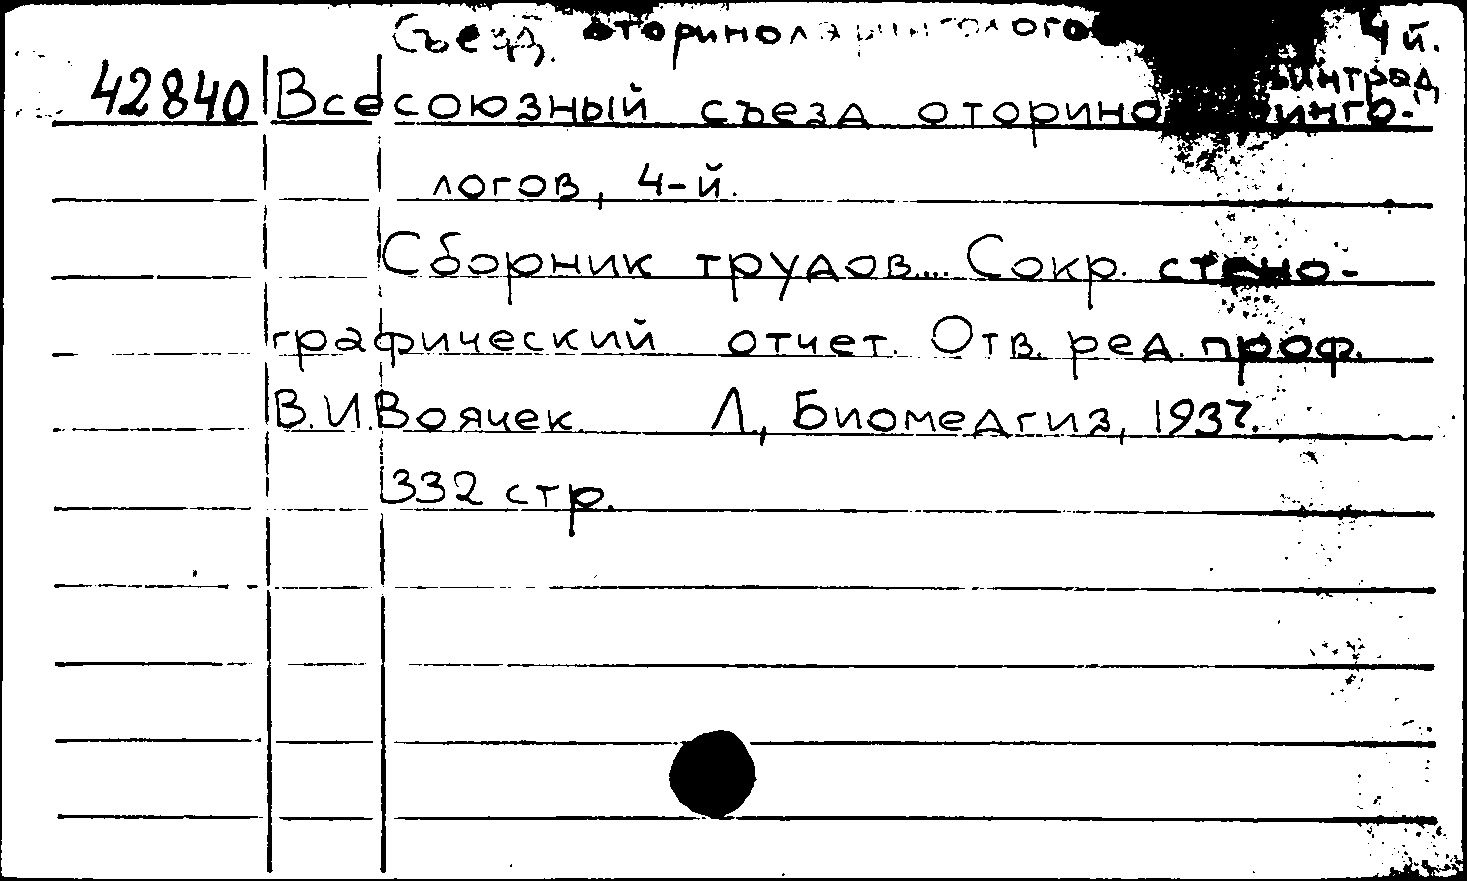 Съезд оториноларингологов 4й.
42840 Всесоюзный съезд оториноларинго-
логов, 4-й.
Сборник трудов.... Сокр. стено-
графический отчет. Отв. ред. проф.
В.И.Воячек. Л., Биомедгиз, 1937.
332 стр.